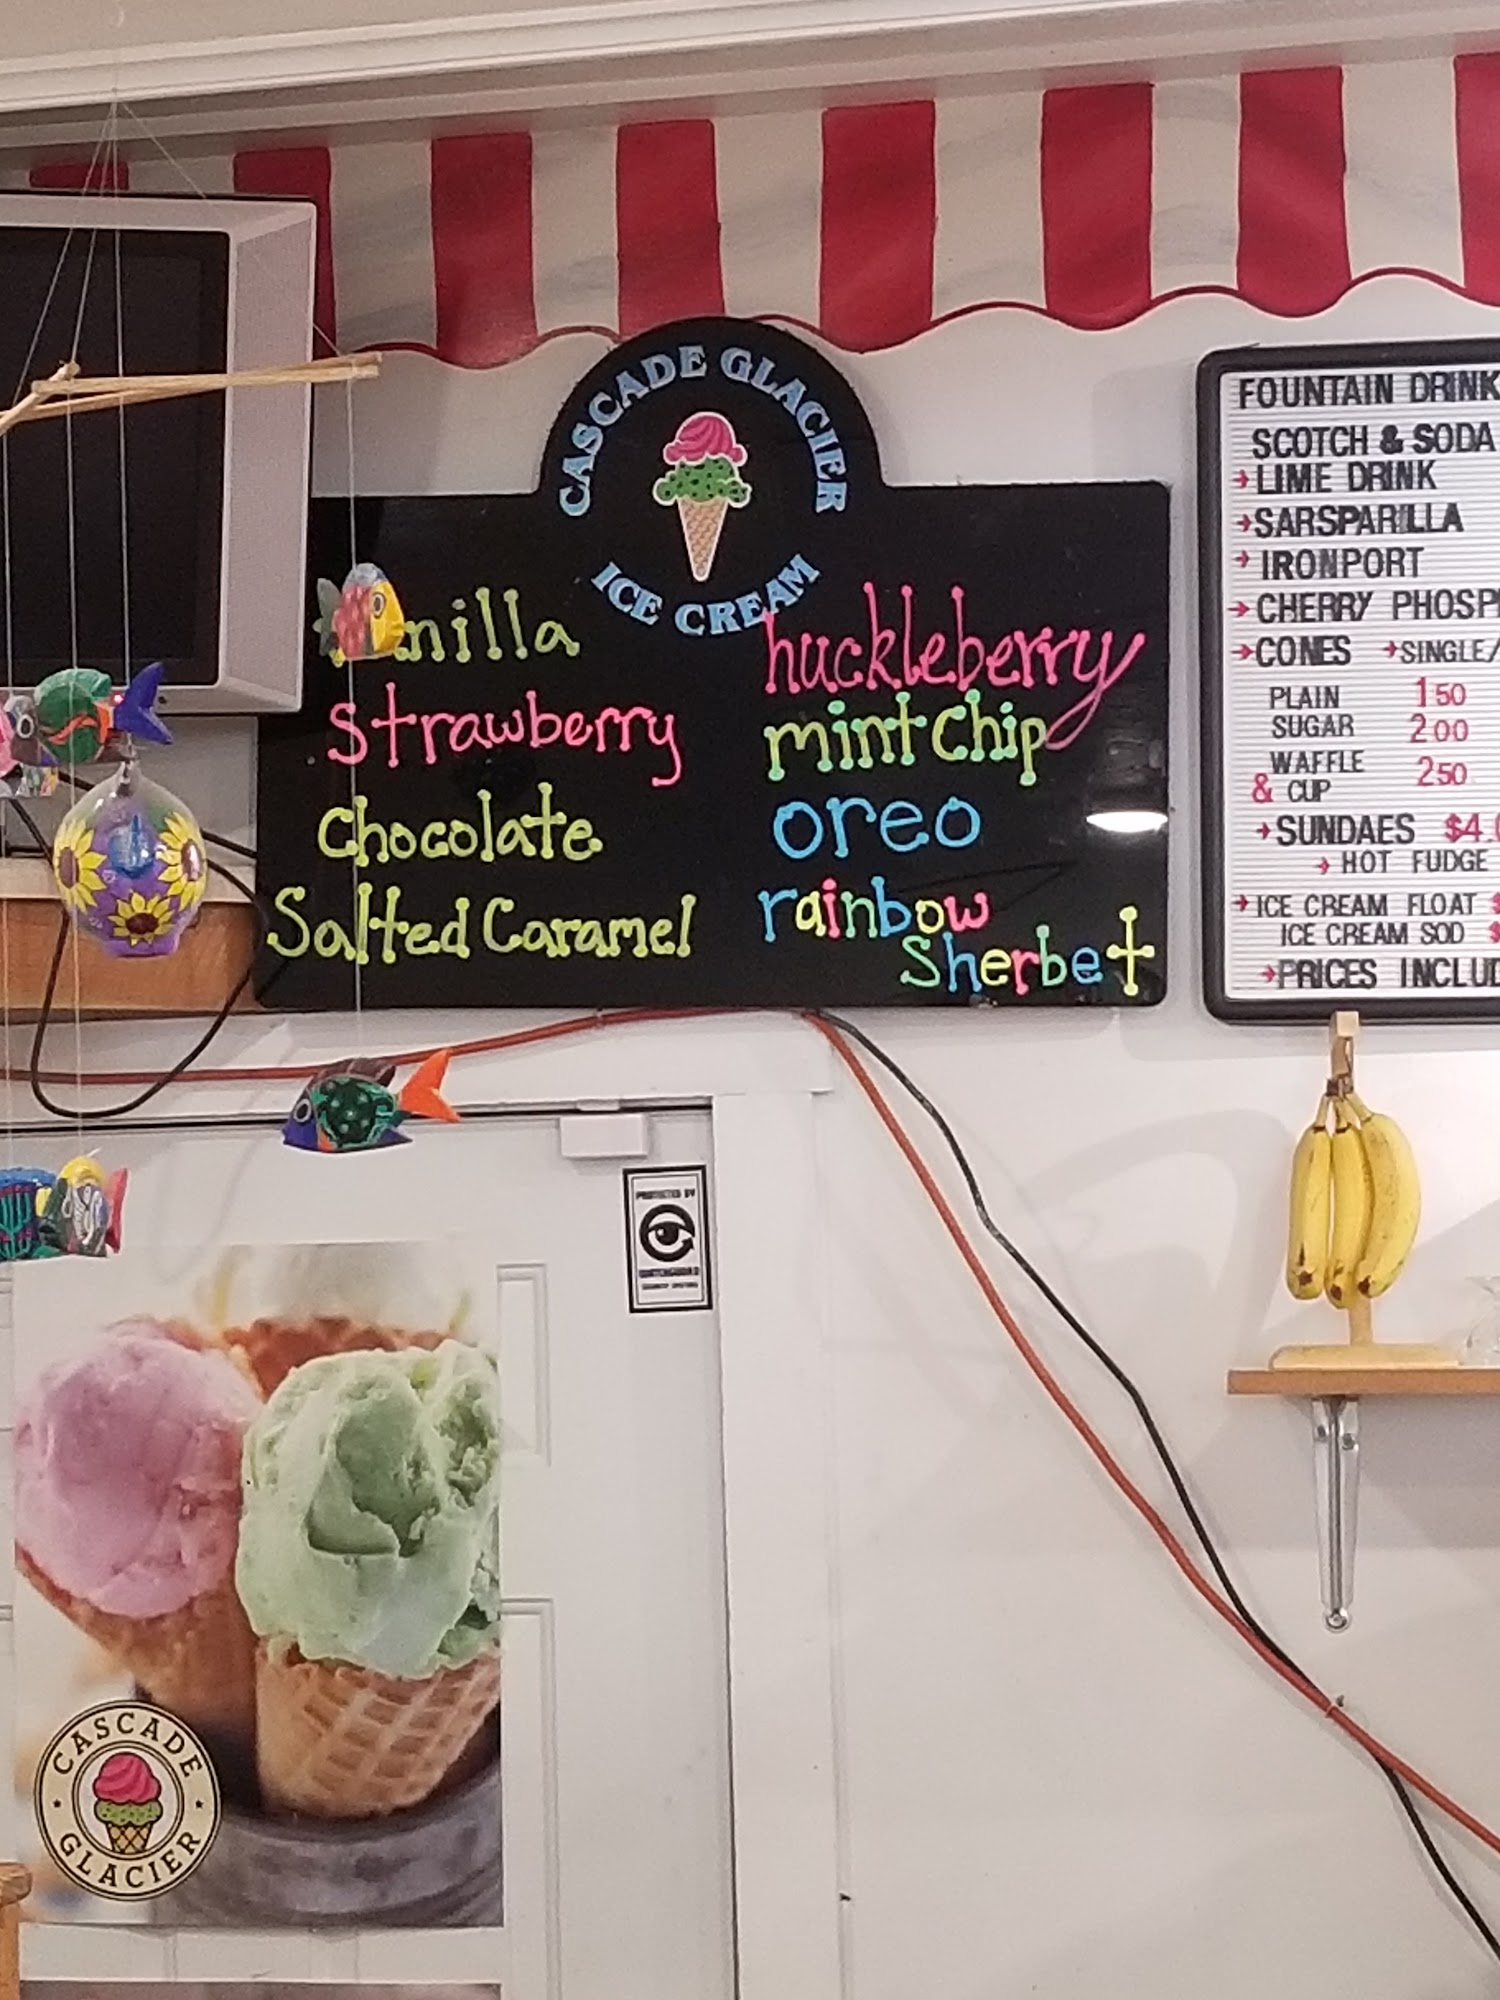 CASCADE GLACIER
ICE CREAM
nilla
Strawberry
Chocolate
Salted Caramel
huckleberry
mint chip
oreo
rainbow
Sherbet
FOUNTAIN DRINK
SCOTCH & SODA
LIME DRINK
SARSPARILLA
IRONPORT
CHERRY PHOSP
CONES → SINGLE/
PLAIN 150
SUGAR 200
WAFFLE
& CUP 250
SUNDAES $4.0
HOT FUDGE
ICE CREAM FLOAT $
ICE CREAM SOD $
PRICES INCLUD
PROTECTED BY
CASCADE
GLACIER